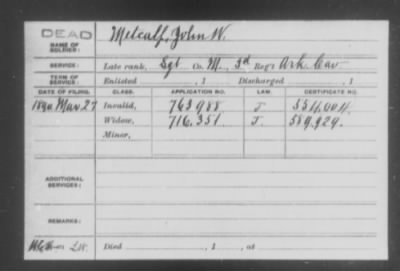 DEAD
NAME OF SOLDIER: Metcalf, John W.
SERVICE: Late rank, Sgt Co. M, 3d Reg't Ark Cav
TERM OF SERVICE: Enlisted , 1 Discharged , 1
DATE OF FILING. CLASS. APPLICATION NO. LAW. CERTIFICATE NO.
1890 Mar 27 Invalid, 763,988 J 554,004.
Widow, 716,351 J 589,929.
Minor,
ADDITIONAL SERVICES:
REMARKS:
Died , 1 , at